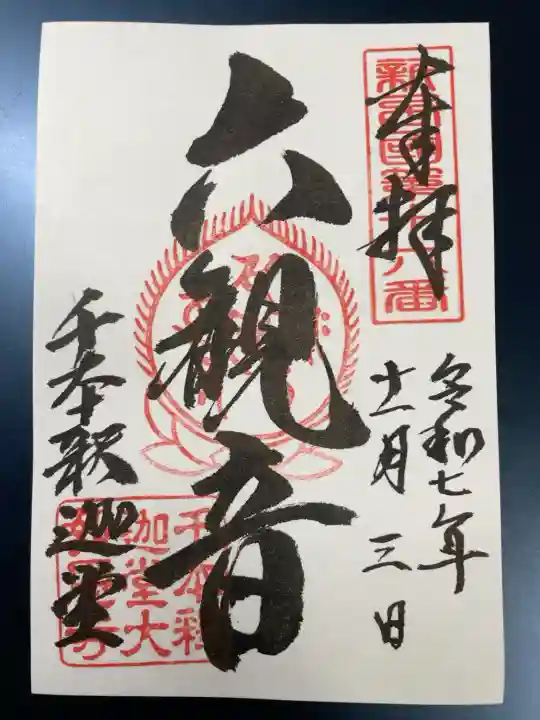 奉拝
新西国第十六番
令和七年
十一月三日
六観音
千本釈迦堂
千本釈
迦堂大
報恩寺